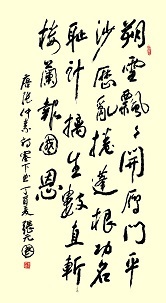 朔雪飄々開雁門平
沙歷亂捲蓬根功名
恥計擒生數直斬
樓蘭報國恩
唐張仲素詩塞下曲丁酉夏張